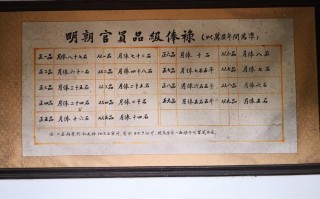 明朝官員品級俸祿（以萬曆年間為準）
正一品 月俸八十七石 從一品 月俸七十二石 正六品 月俸 十石 從六品 月俸 八石
正二品 月俸六十一石 從二品 月俸四十八石 正七品 月俸七石五斗 從七品 月俸 七石
正三品 月俸三十五石 從三品 月俸二十六石 正八品 月俸六石五斗 從八品 月俸 六石
正四品 月俸二十四石 從四品 月俸二十一石 正九品 月俸五石五斗 從九品 月俸 五石
正五品 月俸十六石 從五品 月俸十四石